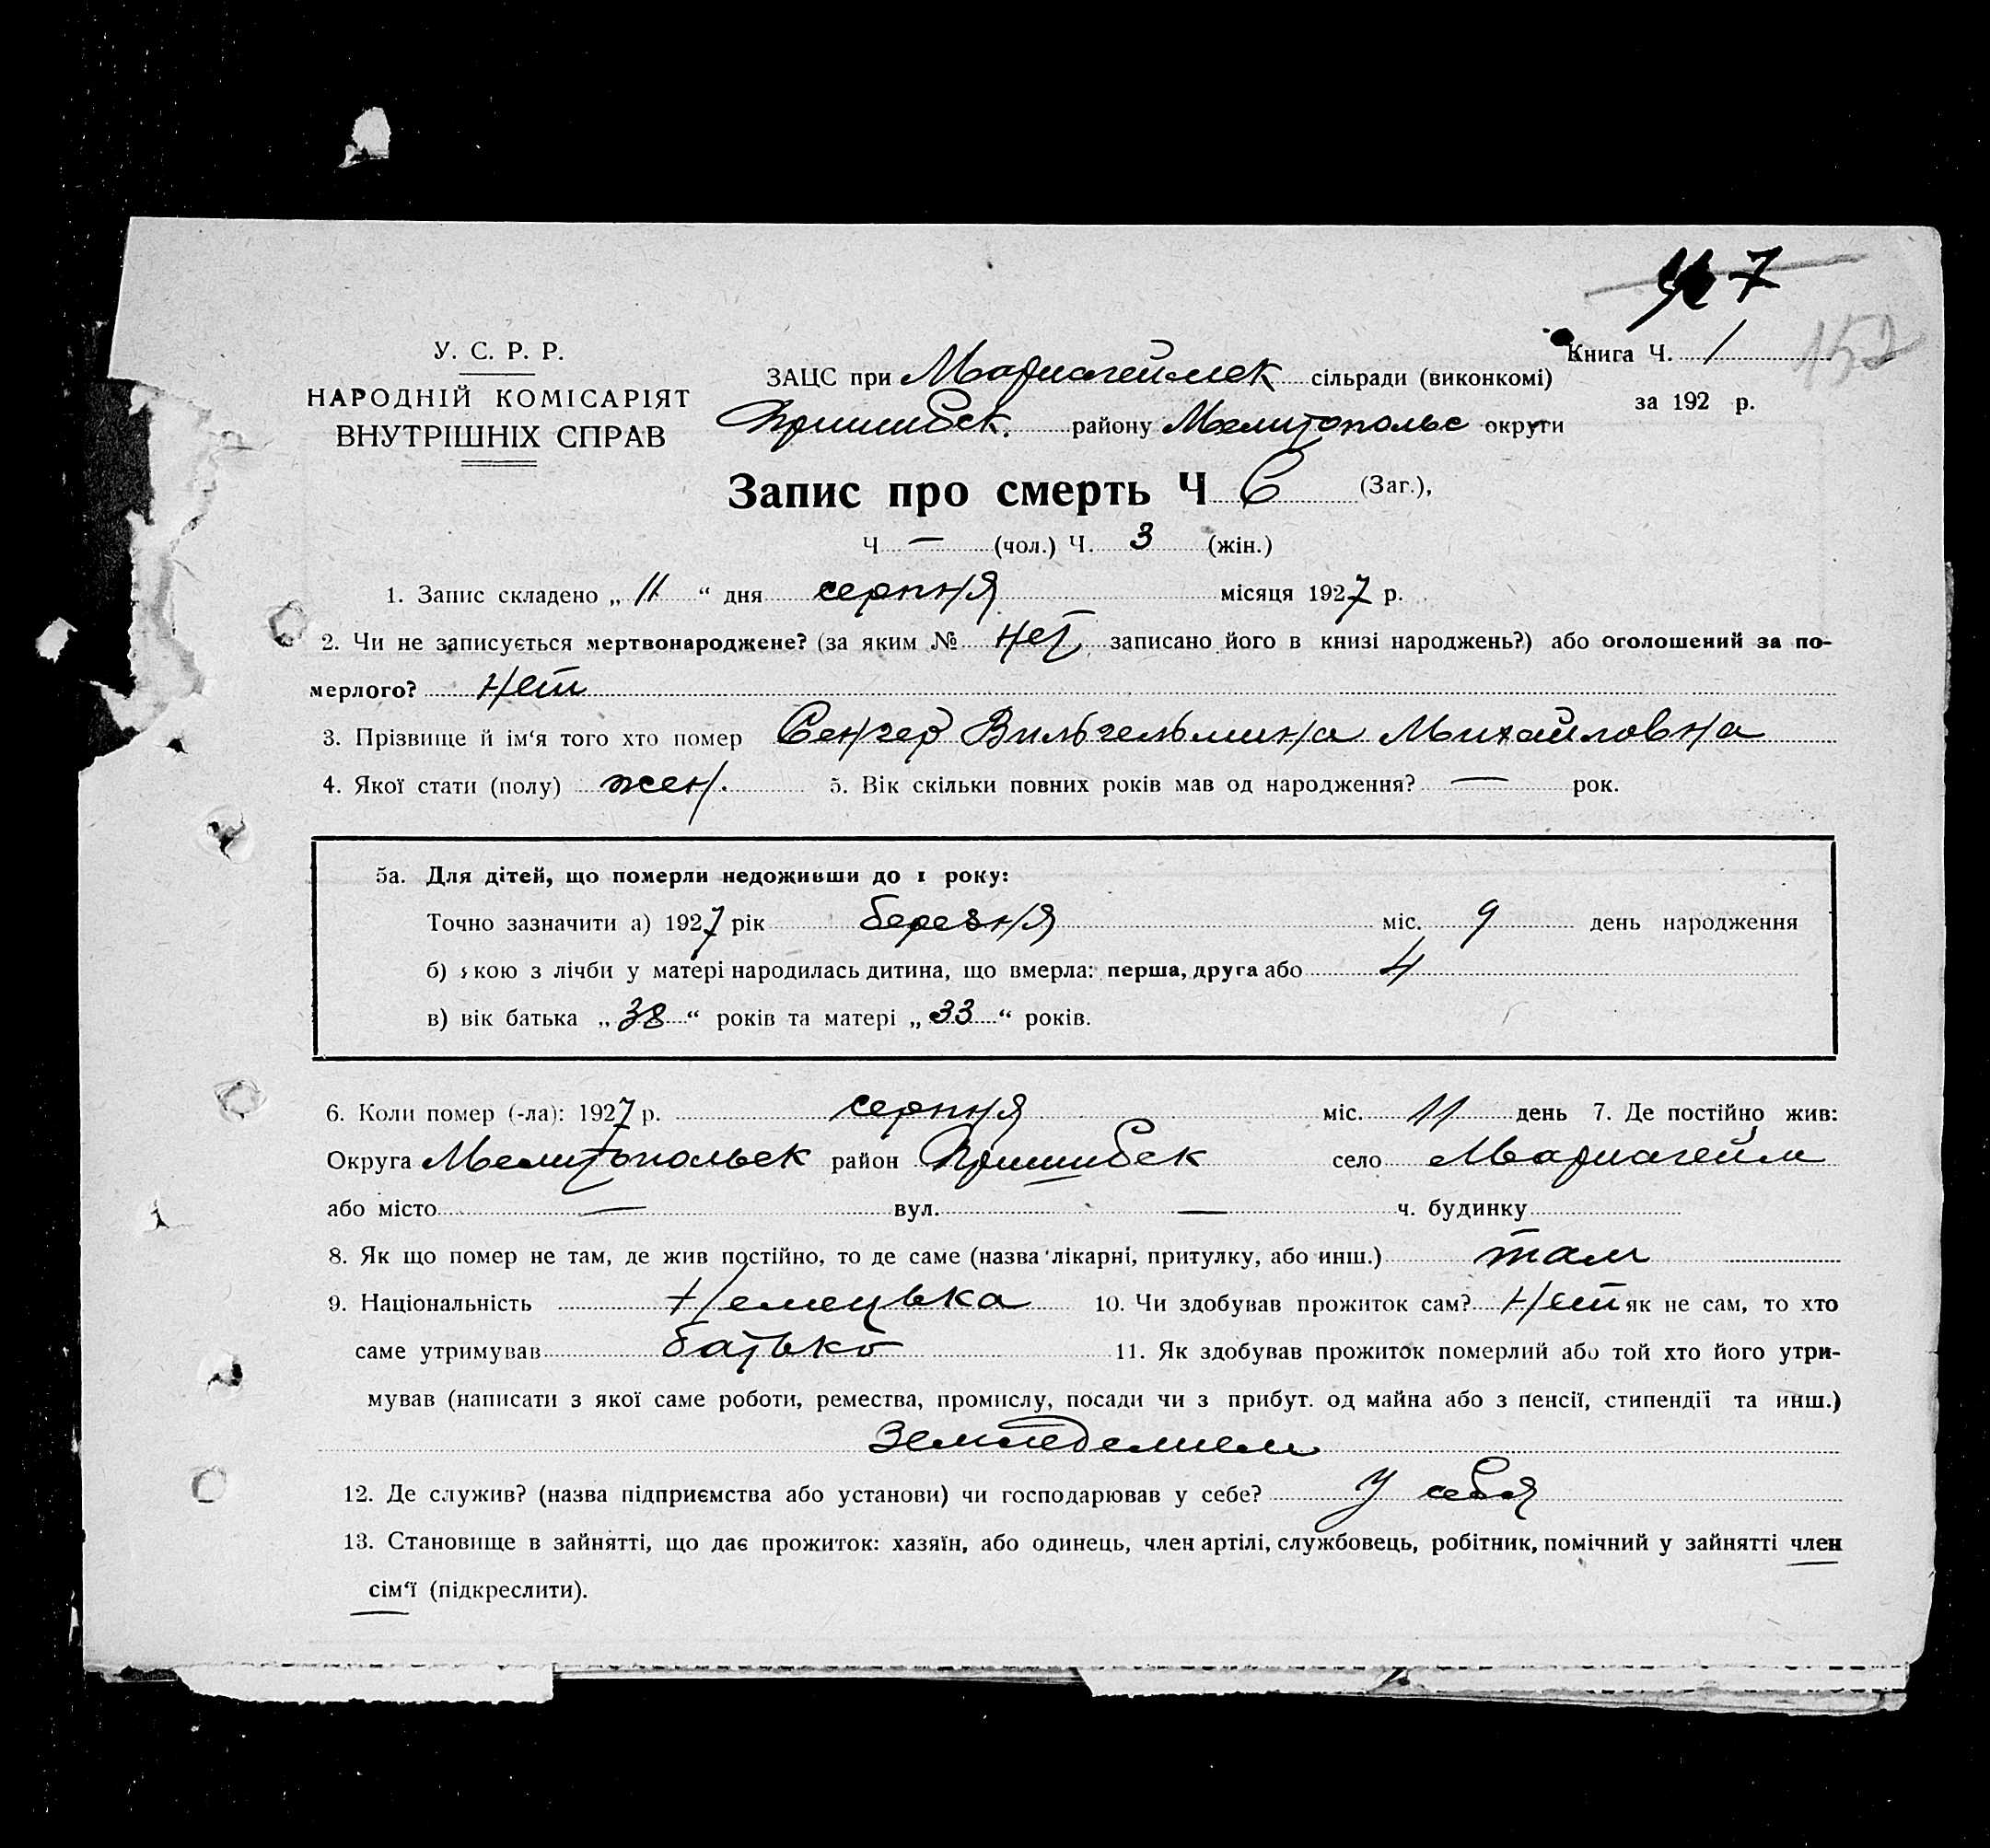 7
152
У. С. Р. Р.
НАРОДНІЙ КОМІСАРІЯТ
ВНУТРІШНІХ СПРАВ
ЗАЦС при Мариагеймск сільради (виконкомі)
Пришибск. району Мелитопольс округи
Книга Ч. 1
за 192 р.
Запис про смерть Ч 6 (Заг.),
Ч — (чол.) Ч. 3 (жін.)
1. Запис складено „ 11 “ дня серпня місяця 1927 р.
2. Чи не записується мертвонароджене? (за яким № нет записано його в книзі народжень?) або оголошений за по-
мерлого? нет
3. Прізвище й ім‘я того хто помер Сенгер Вильгельмина Михайловна
4. Якої стати (полу) жен. 5. Вік скільки повних років мав од народження? — рок.
5а. Для дітей, що померли недоживши до 1 року:
Точно зазначити а) 1927 рік березня міс. 9 день народження
б) якою з лічби у матері народилась дитина, що вмерла: перша, друга або 4
в) вік батька „ 38 “ років та матері „ 33 “ років.
6. Коли помер (-ла): 1927 р. серпня міс. 11 день 7. Де постійно жив:
Округа Мелитопольск район Пришибск село Мариагейм
або місто — вул. — ч. будинку
8. Як що помер не там, де жив постійно, то де саме (назва лікарні, притулку, або инш.) там
9. Національність Немецька 10. Чи здобував прожиток сам? Нет як не сам, то хто
саме утримував батько 11. Як здобував прожиток померлий або той хто його утри-
мував (написати з якої саме роботи, ремества, промислу, посади чи з прибут. од майна або з пенсії, стипендії та инш.)
Земледелием
12. Де служив? (назва підприємства або установи) чи господарював у себе? у себя
13. Становище в зайнятті, що дає прожиток: хазяїн, або одинець, член артілі, службовець, робітник, помічний у зайнятті член
сім‘ї (підкреслити).